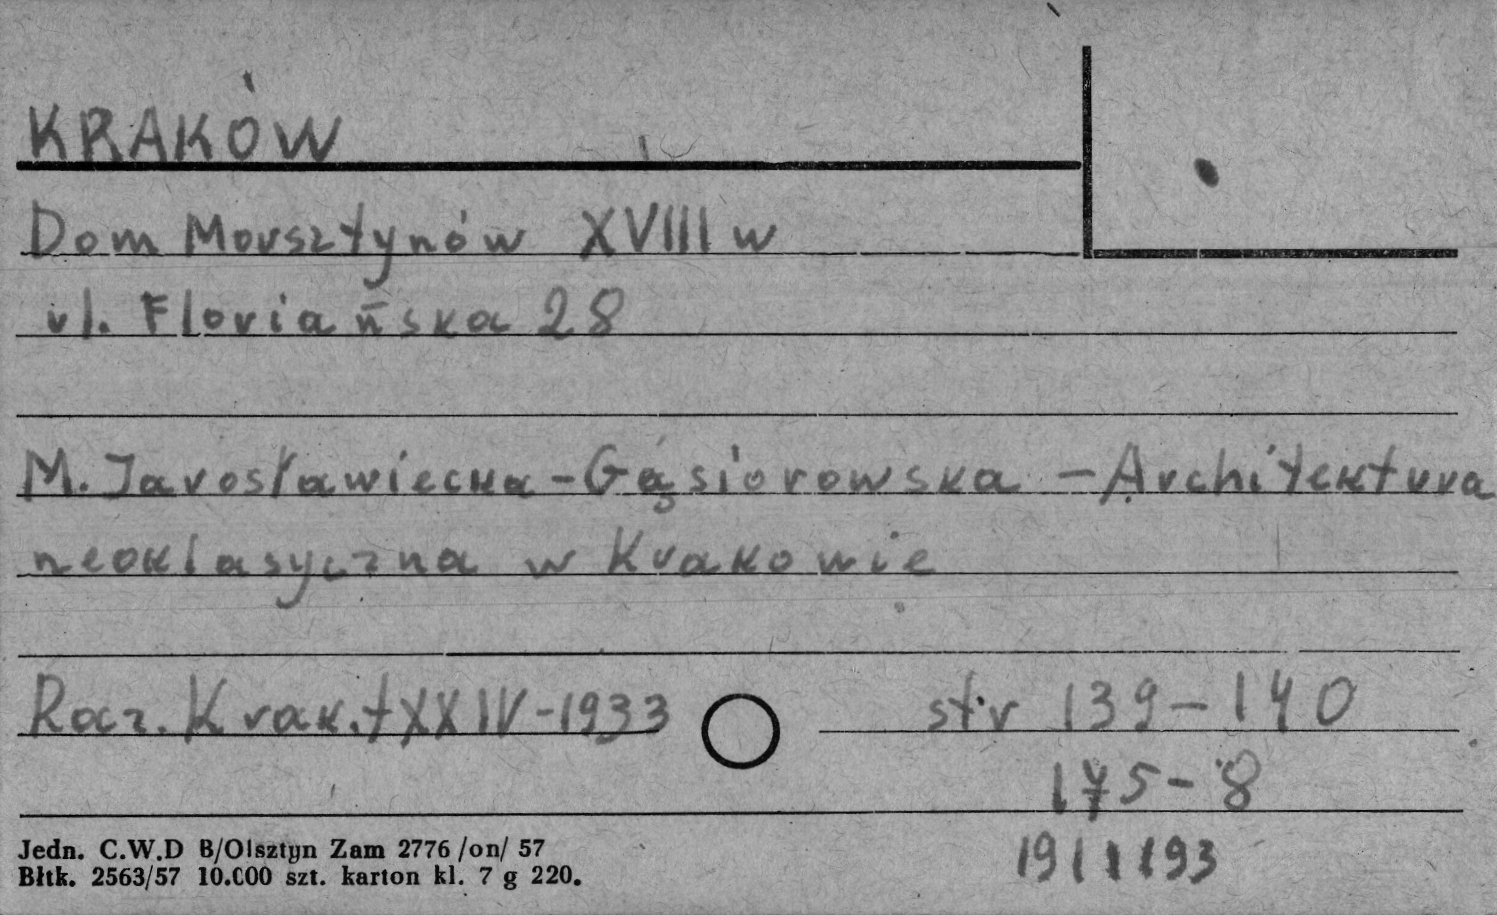 KRAKÓW
Dom Morsztynów XVIII w
ul. Floriańska 28
M. Jarosławiecka - Gąsiorowska - Architektura
neoklasyczna w Krakowie
Rocz. Krak. t XXIV - 1933 str 139 - 140
175 - 8
191 i 193
Jedn. C.W.D B/Olsztyn Zam 2776 /on/ 57
Błtk. 2563/57 10.000 szt. karton kl. 7 g 220.